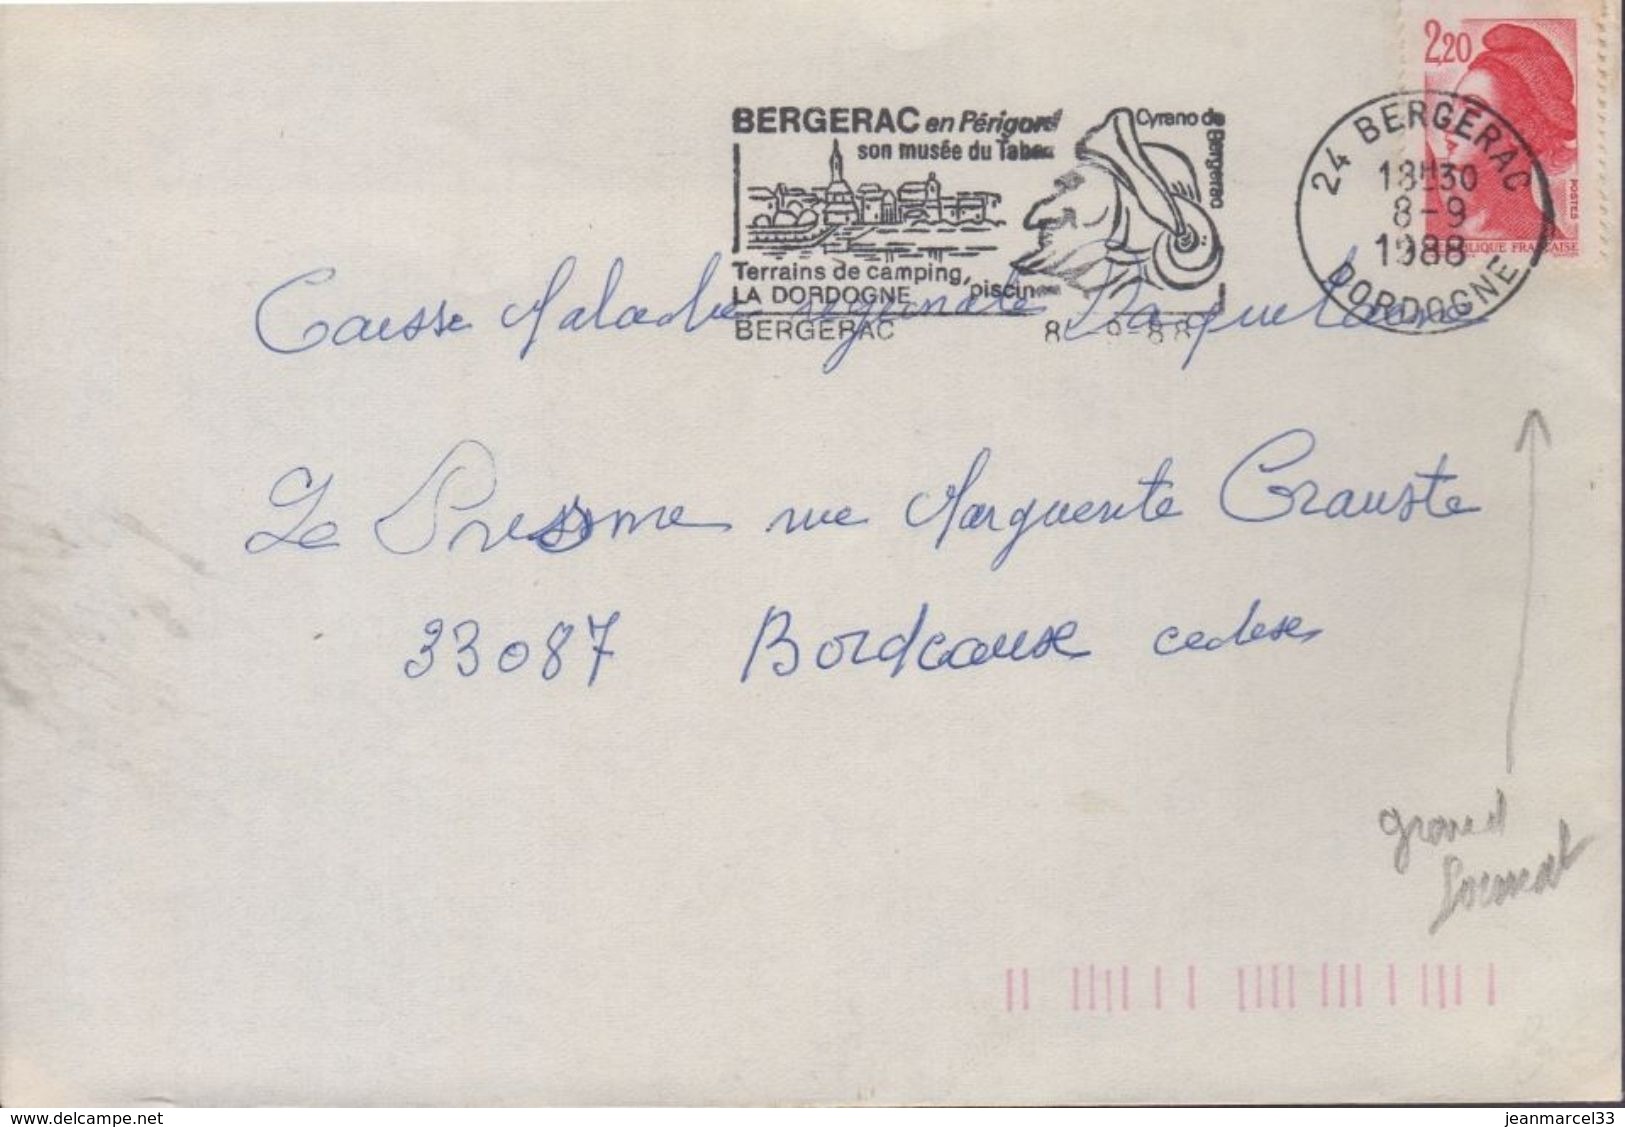 2,20
POSTES
RÉPUBLIQUE FRANÇAISE
24 BERGERAC
18H30
8-9
1988
DORDOGNE
BERGERAC en Périgord
son musée du Tabac
Cyrano de Bergerac
Terrains de camping, piscine
LA DORDOGNE
BERGERAC 8 9-88
Caisse Maladie régionale D'aquitaine
Le Pressme rue Marguerite Crauste
33087 Bordeause cedese
grand
format
www.delcampe.net
jeanmarcel33